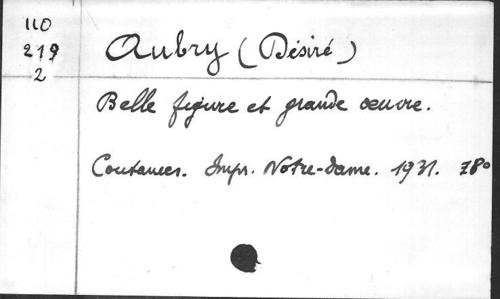 110
219
2
Aubry (Désiré)
Belle figure et grande œuvre.
Coutances. Impr. Notre-Dame. 1931. 78°